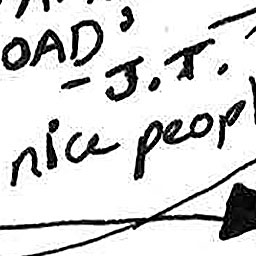 OAD'
- J.T.
nice peopl